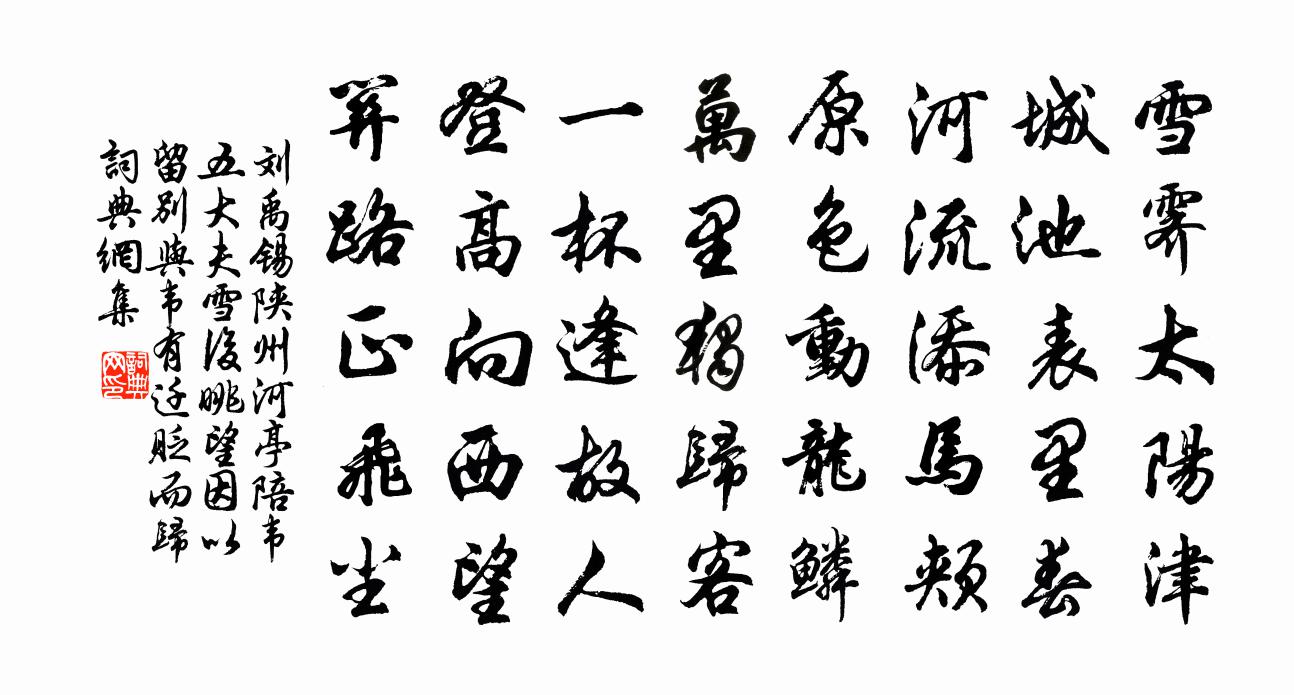 雪霽太陽津
城池表里春
河流添馬頰
原色動龍鱗
萬里獨歸客
一杯逢故人
登高向西望
關路正飛塵
刘禹锡陕州河亭陪韦
五大夫雪後眺望因以
留别與韦有迁贬而歸
詞典網集
詞典
网印